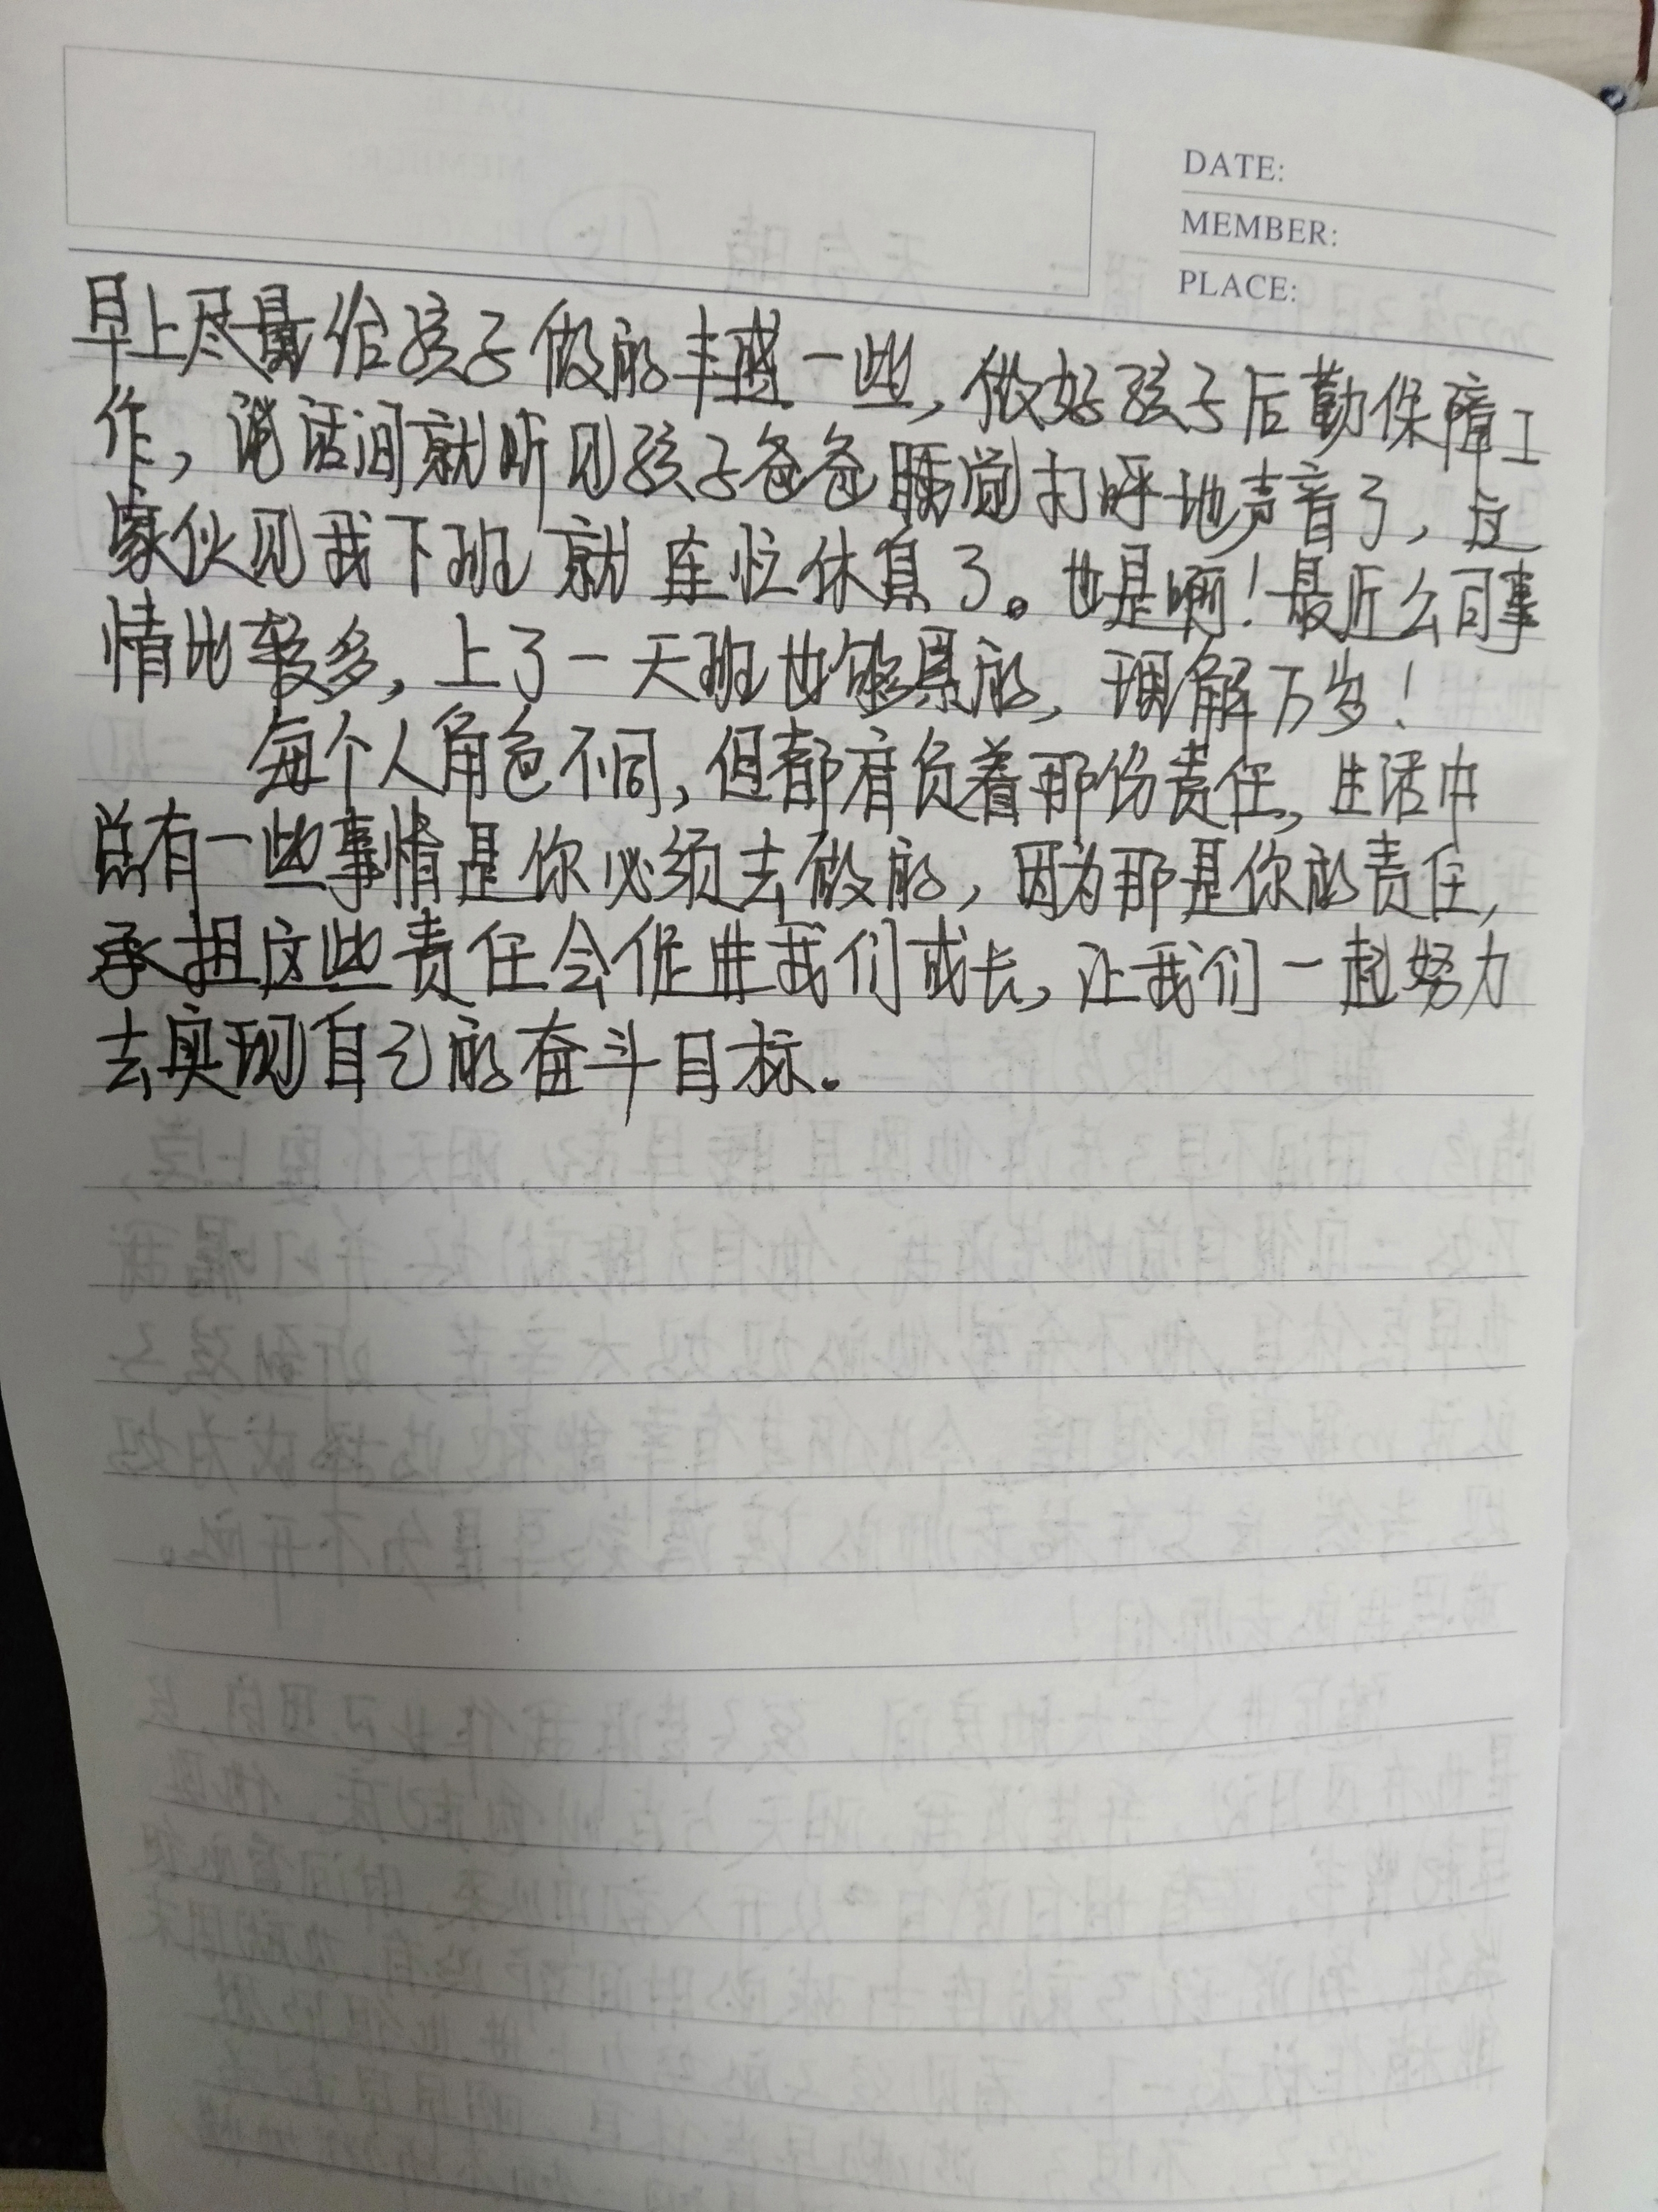 DATE:
MEMBER:
PLACE:
早上尽量给孩子做的丰盛一些,做好孩子后勤保障工
作,说话间就听见孩子爸爸睡觉打呼地声音了,这
家伙见我下班就连忙休息了。也是啊!最近公司事
情比较多,上了一天班也够累的,理解万岁!
每个人角色不同,但都肩负着那份责任,生活中
总有一些事情是你必须去做的,因为那是你的责任,
承担这些责任会促进我们成长,让我们一起努力
去实现自己的奋斗目标。